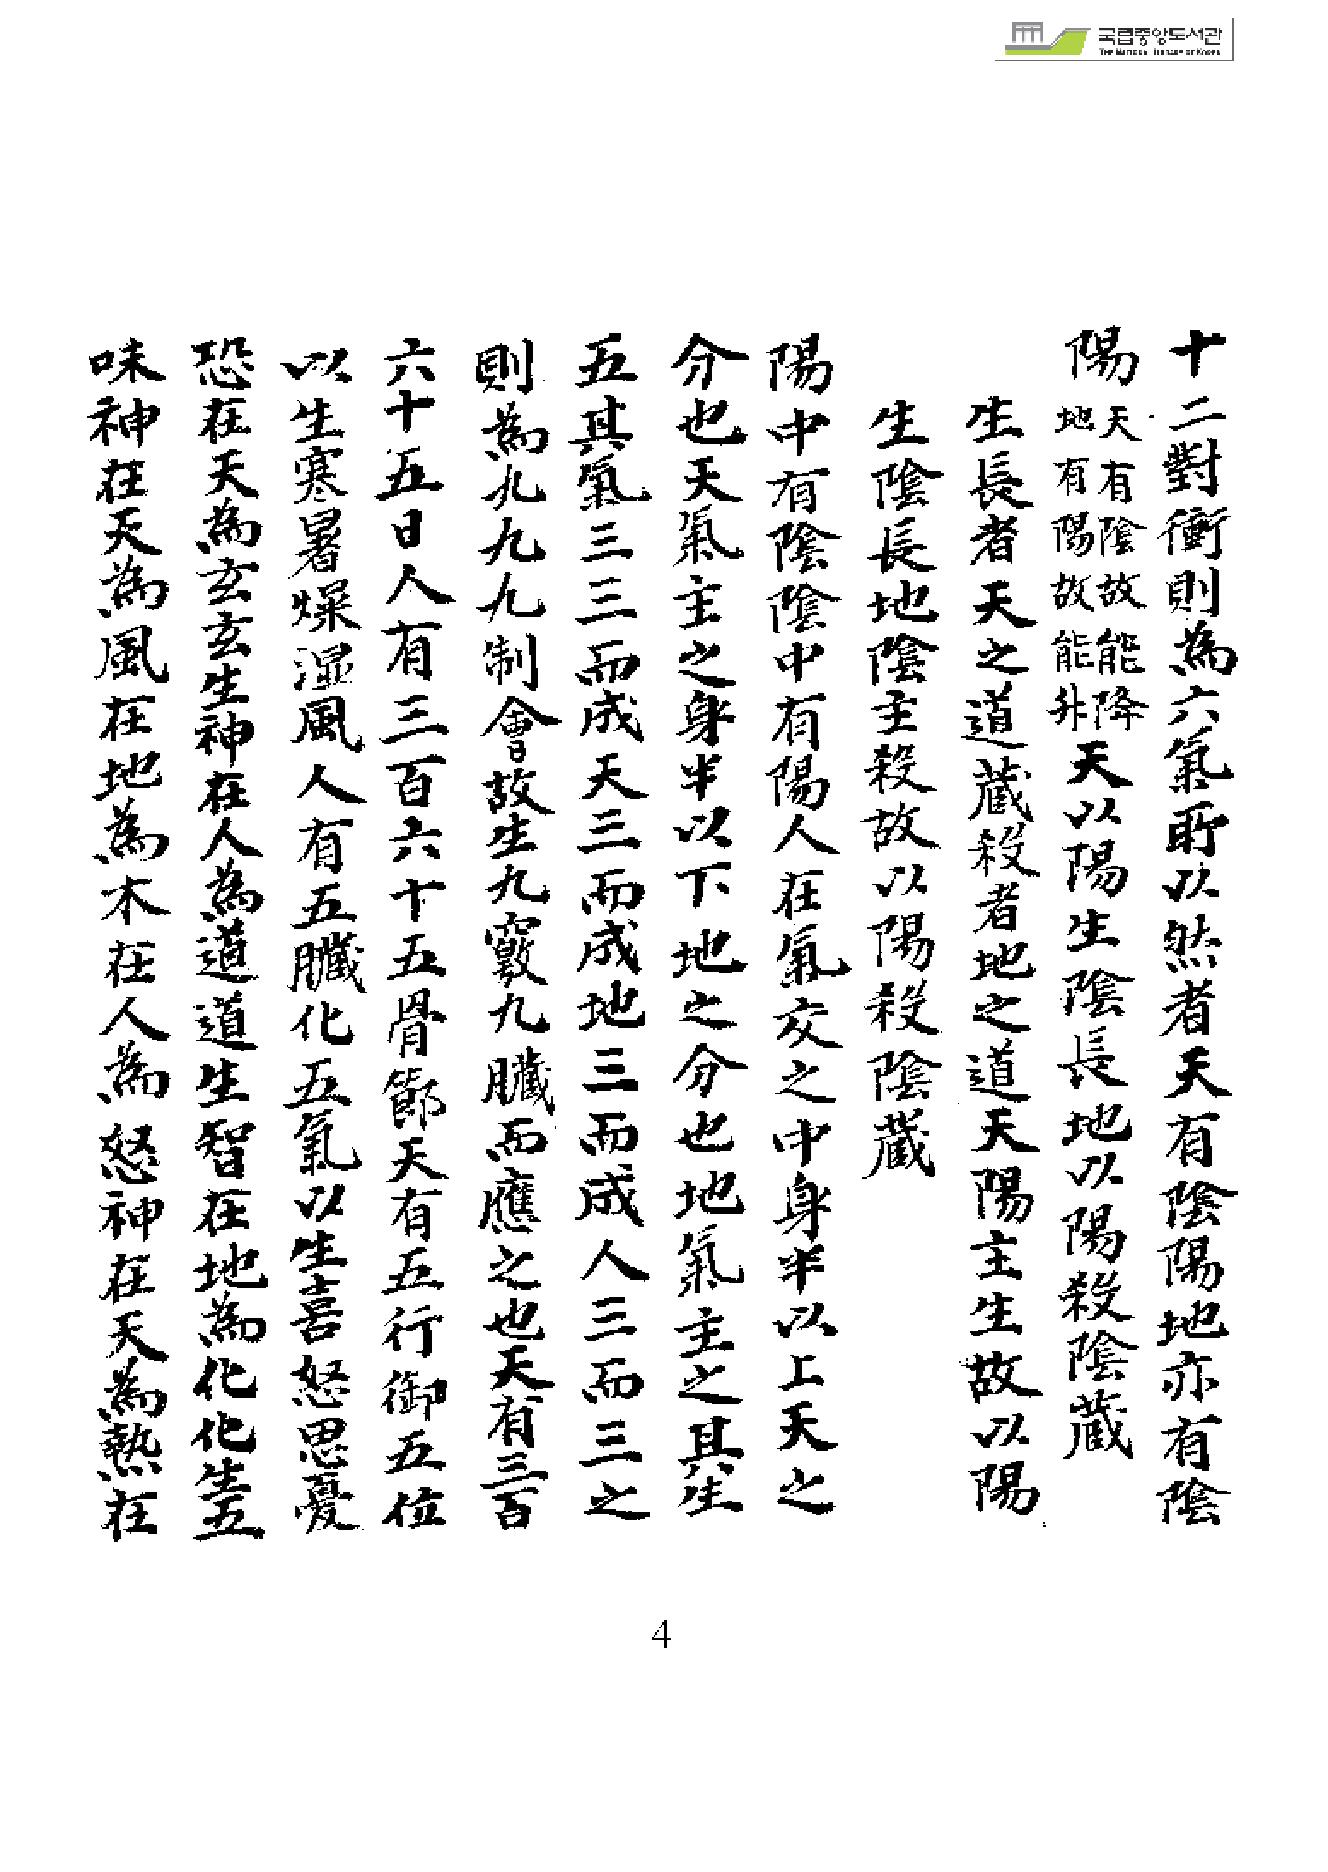 국립중앙도서관
THE NATIONAL LIBRARY OF KOREA
十二對衝則為六氣所以然者天有陰陽地亦有陰
陽天有陰故能降地有陽故能升天以陽生陰長地以陽殺陰蔵
生長者天之道蔵殺者地之道天陽主生故以陽
生陰長地陰主殺故以陽殺陰蔵
陽中有陰陰中有陽人在氣交之中身半以上天之
分也天氣主之身半以下地之分也地氣主之其生
五其氣三三而成天三而成地三而成人三而三之
則為九九九制會故生九竅九臓而應之也天有三百
六十五日人有三百六十五骨節天有五行御五位
以生寒暑燥湿風人有五臓化五氣以生喜怒思憂
恐在天為玄玄生神在人為道道生智在地為化化生五
味神在天為風在地為木在人為怒神在天為熱在
4